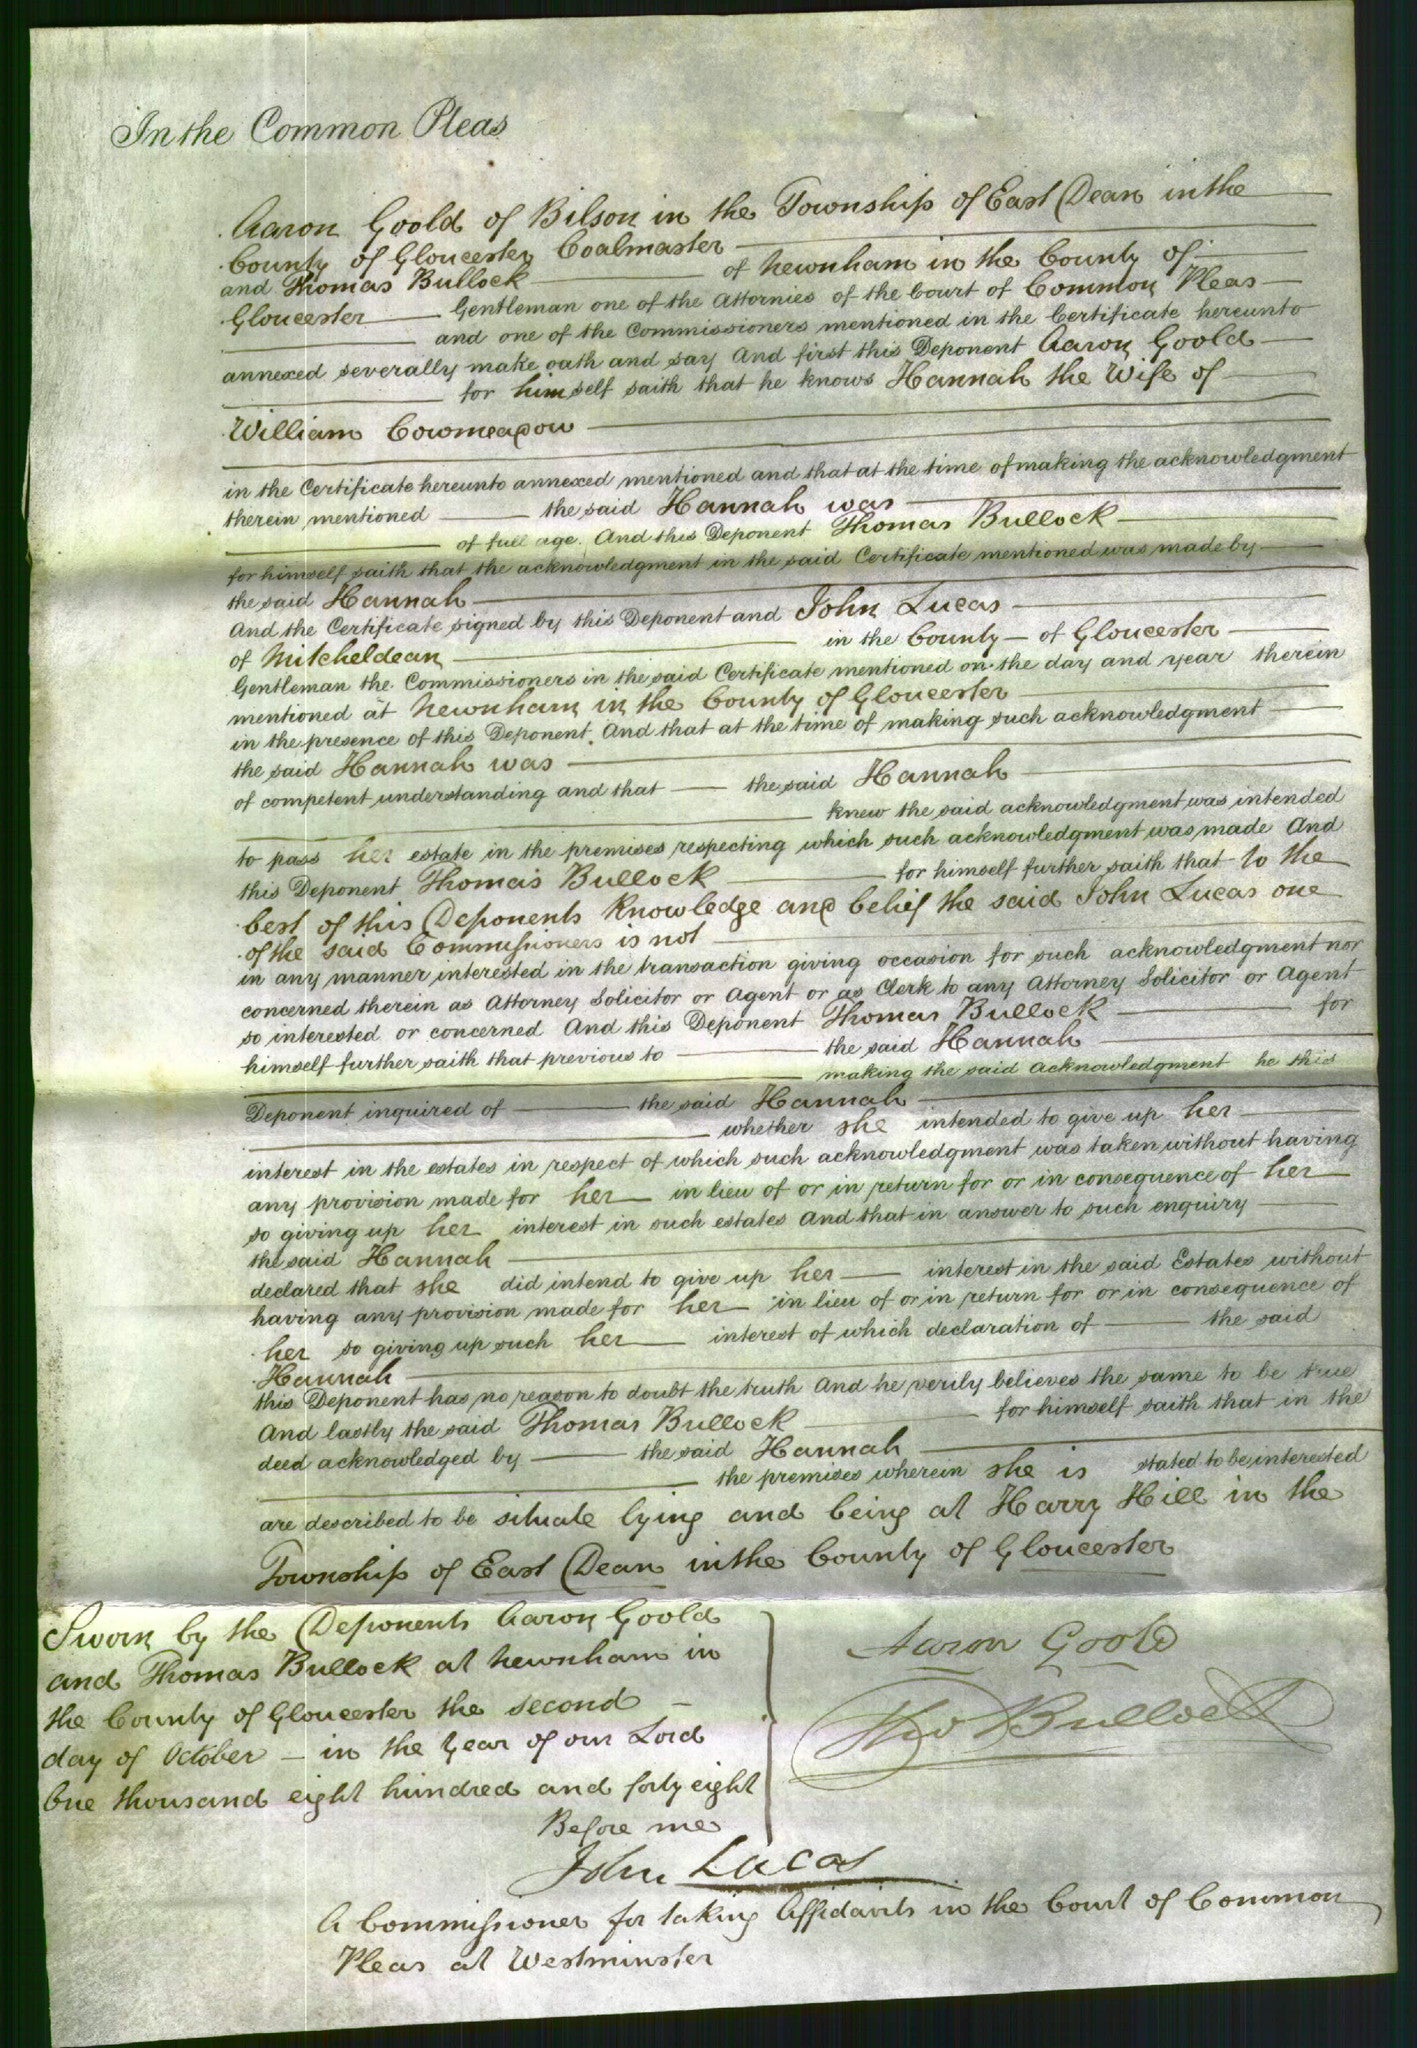 In the Common Pleas
Aaron Goold of Bilson in the Township of East Dean in the
County of Gloucester Coalmaster
and Thomas Bullock of Newnham in the County of
Gloucester Gentleman one of the Attornies of the Court of Common Pleas
and one of the Commissioners mentioned in the Certificate hereunto
annexed severally make oath and say And first this Deponent Aaron Goold
for himself saith that he knows Hannah the Wife of
William Cowmeadow
in the Certificate hereunto annexed mentioned and that at the time of making the acknowledgment
therein mentioned the said Hannah was
of full age. And this Deponent Thomas Bullock
for himself saith that the acknowledgment in the said Certificate mentioned was made by
the said Hannah
And the Certificate signed by this Deponent and John Lucas
of Mitcheldean in the County of Gloucester
Gentleman the Commissioners in the said Certificate mentioned on the day and year therein
mentioned at Newnham in the County of Gloucester
in the presence of this Deponent. And that at the time of making such acknowledgment
the said Hannah was
of competent understanding and that the said Hannah
knew the said acknowledgment was intended
to pass her estate in the premises respecting which such acknowledgment was made And
this Deponent Thomas Bullock for himself further saith that to the
best of this Deponents knowledge and belief the said John Lucas one
of the said Commissioners is not
in any manner interested in the transaction giving occasion for such acknowledgment nor
concerned therein as Attorney Solicitor or Agent or as Clerk to any Attorney Solicitor or Agent
so interested or concerned And this Deponent Thomas Bullock for
himself further saith that previous to the said Hannah
making the said acknowledgment he this
Deponent inquired of the said Hannah
whether she intended to give up her
interest in the estates in respect of which such acknowledgment was taken without having
any provision made for her in lieu of or in return for or in consequence of her
so giving up her interest in such estates And that in answer to such enquiry
the said Hannah
declared that she did intend to give up her interest in the said Estates without
having any provision made for her in lieu of or in return for or in consequence of
her so giving up such her interest of which declaration of the said
Hannah
this Deponent has no reason to doubt the truth And he verily believes the same to be true
And lastly the said Thomas Bullock for himself saith that in the
deed acknowledged by the said Hannah
the premises wherein she is stated to be interested
are described to be situate lying and being at Harry Hill in the
Township of East Dean in the County of Gloucester
Sworn by the Deponents Aaron Goold
and Thomas Bullock at Newnham in
the County of Gloucester the second
day of October in the Year of our Lord
One thousand eight hundred and forty eight
Before me
John Lucas
A Commissioner for taking Affidavits in the Court of Common
Pleas at Westminster
Aaron Goold
Tho Bullock